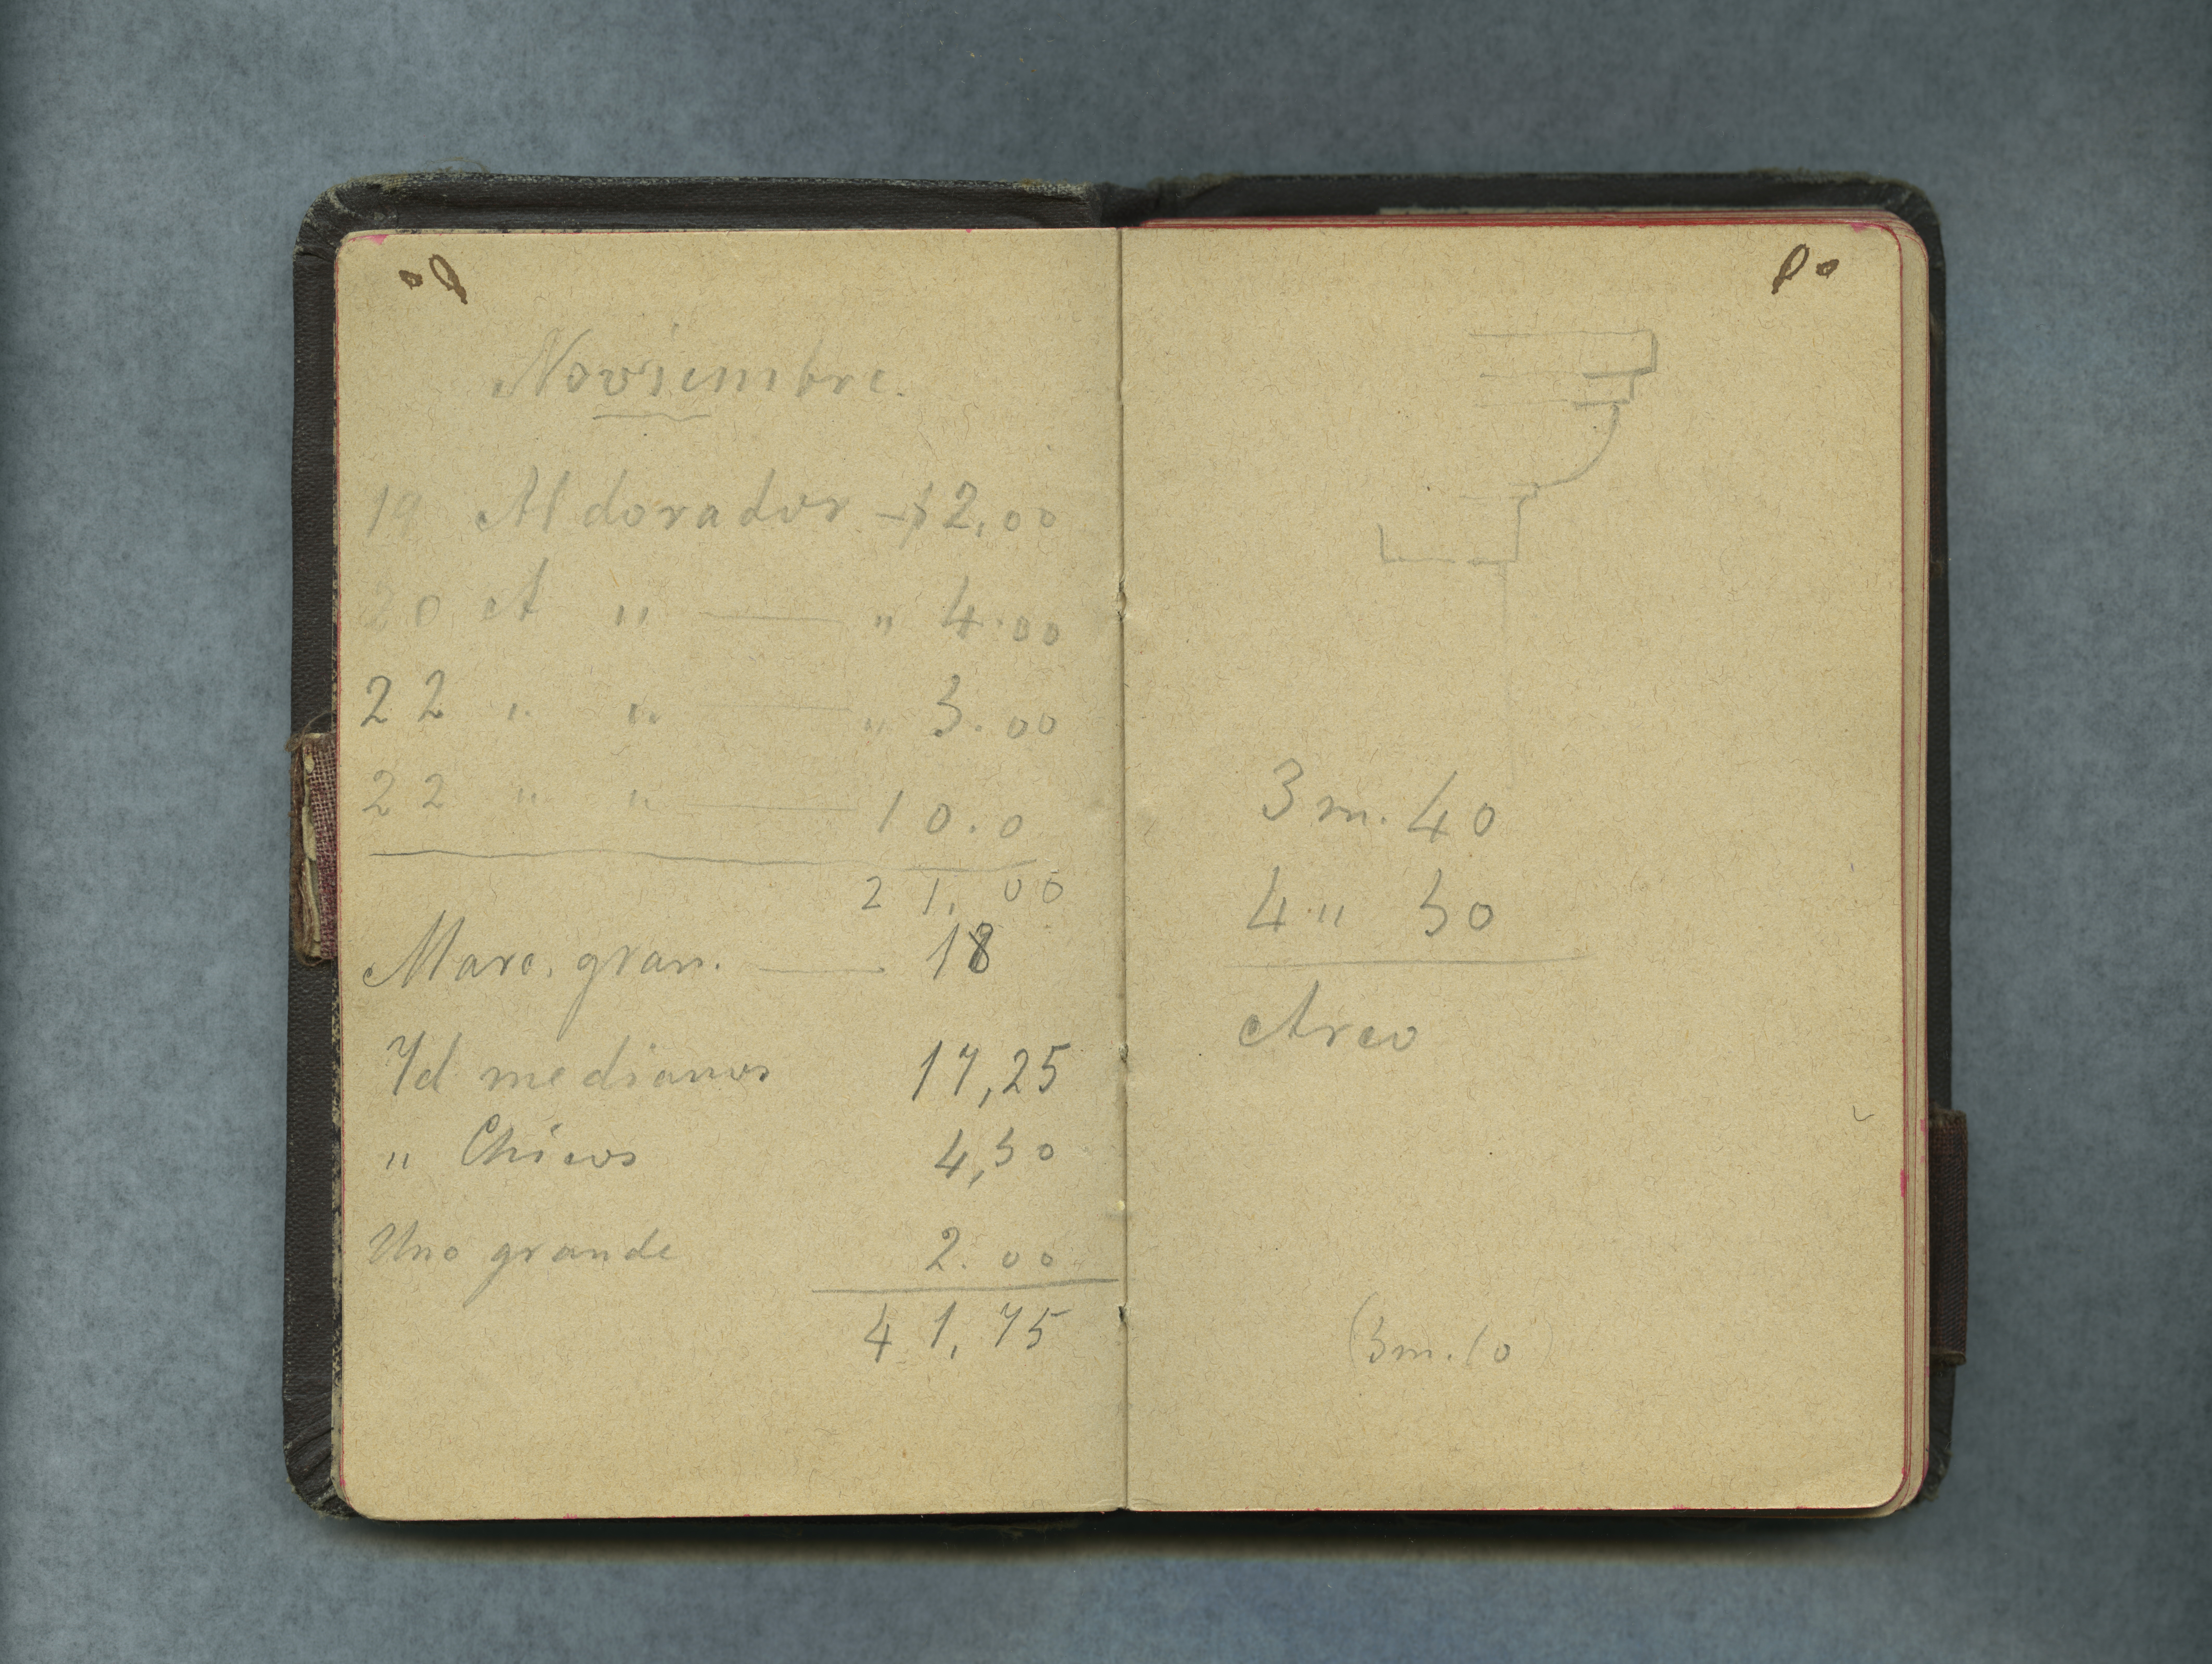 Noviembre.
19 Al dorador — $ 2,00
20 A " — " 4.00
22 " " — " 5.00
22 " " — 10.0
21,00
Marc. gran. — 18
Yd medianos 17,25
" Chicos 4,50
Uno grande 2.00
41,75
3 m. 40
4 " 50
Arco
(5m.10)